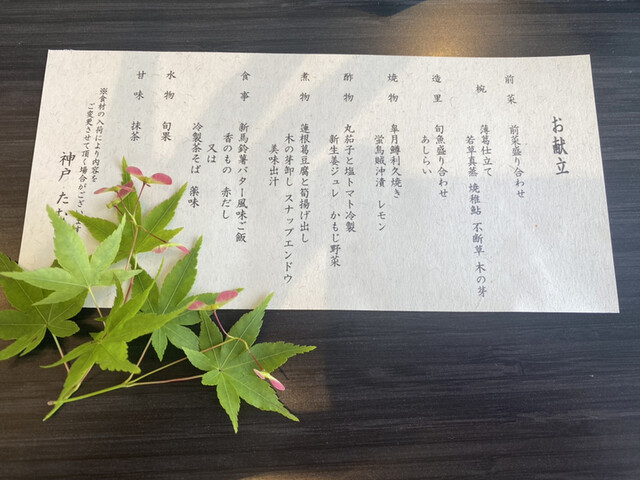 お献立
前菜 前菜盛り合わせ
椀 薄葛仕立て
若草真薯 焼稚鮎 不断草 木の芽
造里 旬魚盛り合わせ
あしらい
焼物 皐月鱒利久焼き
蛍烏賊沖漬 レモン
酢物 丸茄子と塩トマト冷製
新生姜ジュレ かもじ野菜
煮物 蓮根葛豆腐と筍揚げ出し
木の芽卸し スナップエンドウ
美味出汁
食事 新馬鈴薯バター風味ご飯
香のもの 赤だし
又は
冷製茶そば 薬味
水物 旬果
甘味 抹茶
※食材の入荷により内容を
ご変更させて頂く場合がござ
神戸 た